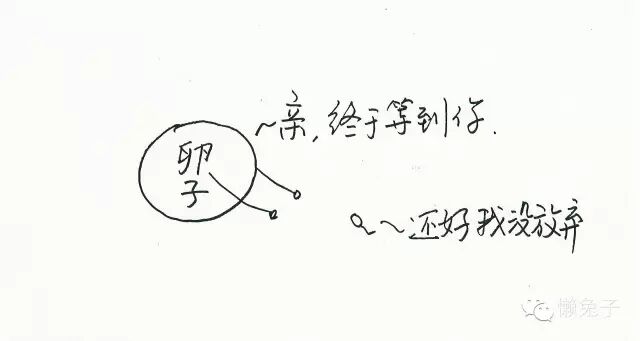 ~亲,终于等到你.
卵
子
~还好我没放弃
懒兔子